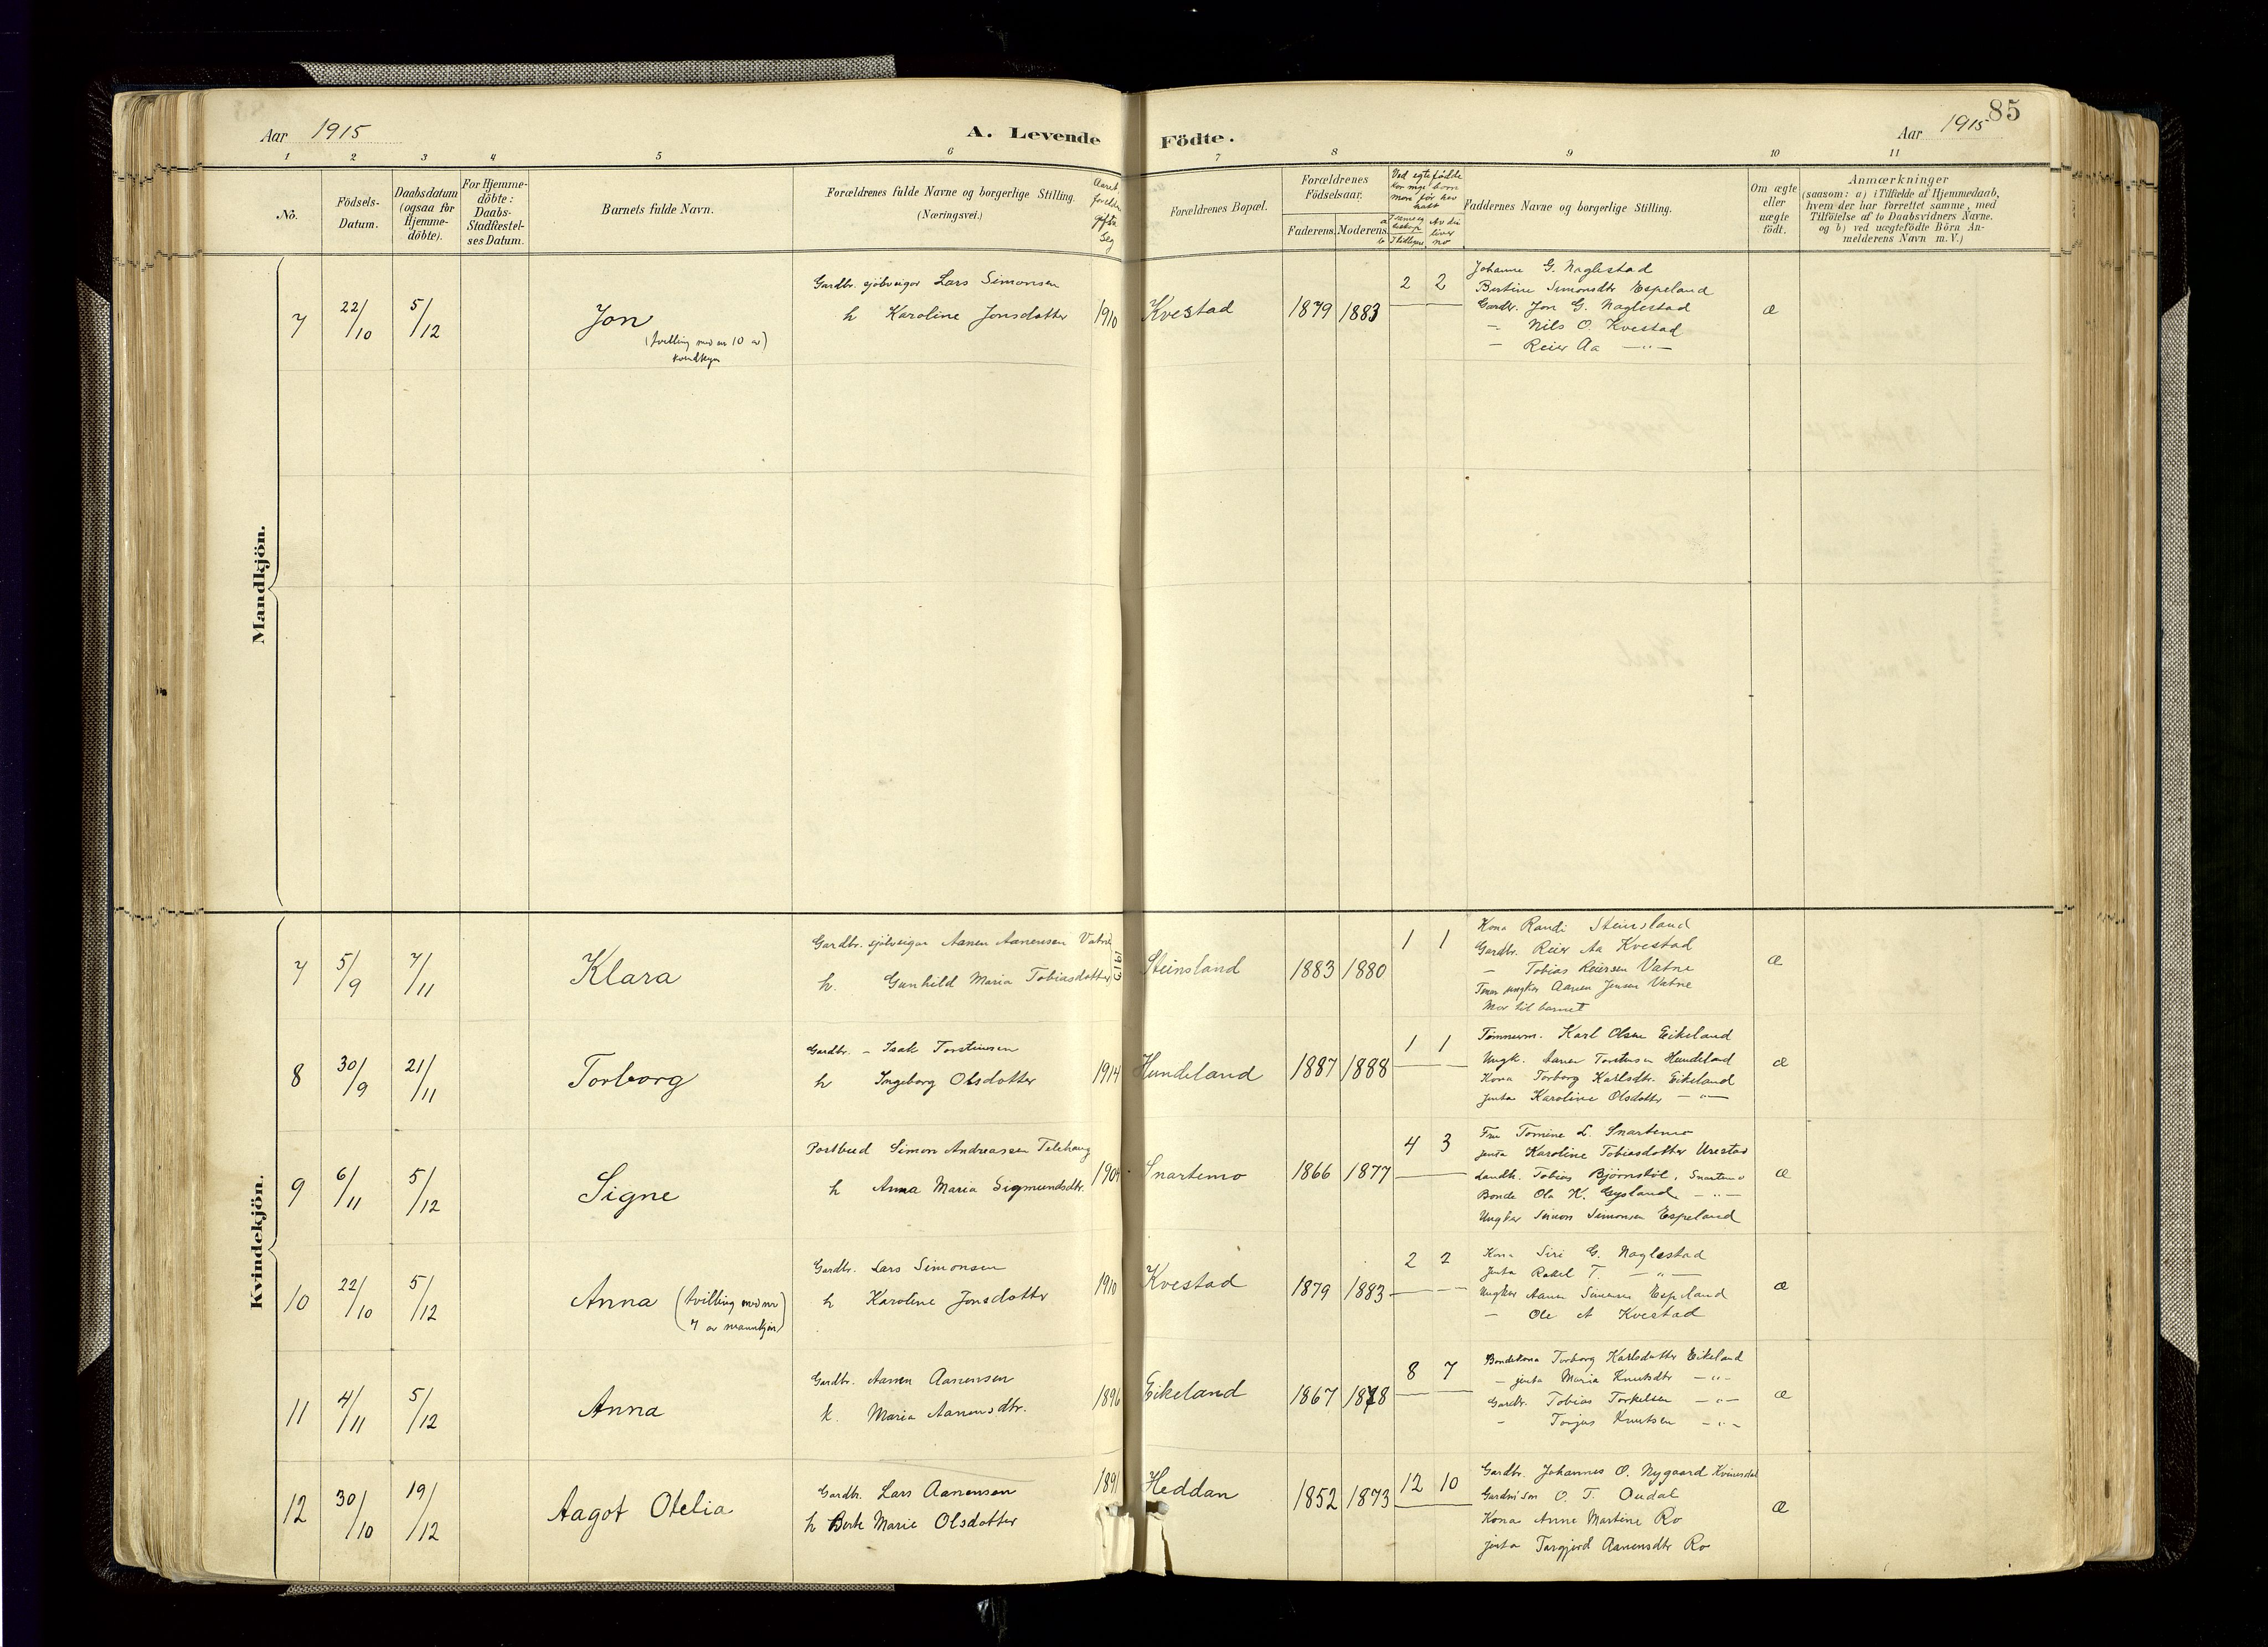 85
Aar 1915
A. Levende Födte.
Aar 1915
1 2 3 4 5 6 7 8 9 10 11
No.
Födsels-Datum.
Daabsdatum (ogsaa for Hjemme-döbte).
For Hjemme-döbte: Daabs-Stadfæstel-ses Datum.
Barnets fulde Navn.
Forældrenes fulde Navne og borgerlige Stilling.
(Næringsvei.)
Aaret foreldr. gifte seg
Forældrenes Bopæl.
Forældrenes Födselsaar.
Faderens. Moderens.
Faddernes Navne og borgerlige Stilling.
Om ægte eller uægte födt.
Anmærkninger
(saasom: a) i Tilfælde af Hjemmedaab,
hvem der har forrettet samme, med
Tilföielse af to Daabsvidners Navne.
og b) ved uægtefödte Börn An-
melderens Navn m. V.)
Mandkjön.
7 22/10 5/12 Jon
(tvilling med nr 10 av kvindkjøn)
Gardbr. sjölveigar Lars Simonsen
h Karoline Jonsdotter
1910 Kvestad 1879 1883 2 2
Johanne G. Naglestad
Bertine Simonsdtr Espeland
Gardbr. Jon G. Naglestad
– Nils O. Kvestad
– Reier Aa –"–
æ
Kvindekjön.
7 5/9 7/11 Klara
Gardbr. sjölveigar Aanen Aanensen Vatne
h. Gunhild Maria Tobiasdotter
1913 Steinsland 1883 1880 1 1
Kona Randi Steinsland
Gardbr. Reier Aa Kvestad
– Tobias Reiersen Vatne
ungkar Aanen Jensen Vatne
Mor til barnet
æ
8 30/9 21/11 Torborg
Gardbr. – Isak Torstensen
h Ingeborg Olsdotter
1914 Hundeland 1887 1888 1 1
Tømmerm. Karl Olsen Eikeland
Ungk. Aanen Torstensen Hundeland
Kona Torborg Karlsdtr. Eikeland
jenta Karoline Olsdotter –"–
æ
9 6/11 5/12 Signe
Postbud Simon Andreassen Telehaug
h Anna Maria Sigmundsdtr.
1904 Snartemo 1866 1877 4 3
Fru Tomine L. Snartemo
jenta Karoline Tobiasdotter Urestad
Landh. Tobias Bjørnstøl, Snartemo
Bonde Ola K. Gysland –"–
Ungkar Simon Simonsen Espeland
æ
10 22/10 5/12 Anna (tvilling med nr 7 av mannkjøn)
Gardbr. Lars Simonsen
h Karoline Jonsdotter
1910 Kvestad 1879 1883 2 2
Kona Siri G. Naglestad
jenta Rakel T. –"–
Ungkar Aanen Simonsen Espeland
– Ole A Kvestad
æ
11 4/11 5/12 Anna
Gardbr. Aanen Aanensen
k. Maria Aanensdtr.
1896 Eikeland 1867 1878 8 7
Bondekona Torborg Karlsdotter Eikeland
– jenta Maria Knutsdtr –"–
Gardbr. Tobias Torkelsen –"–
– Torjus Knutsen –"–
æ
12 30/10 19/12 Aagot Otelia
Gardbr. Lars Aanensen
h Berte Marie Olsdotter
1891 Heddan 1852 1873 12 10
Gardbr. Johannes O. Nygaard Kvinesdal
Gardm.søn O. T. Oudal
Kona Anne Martine Ro
jenta Targjerd Aanensdtr Ro
æ